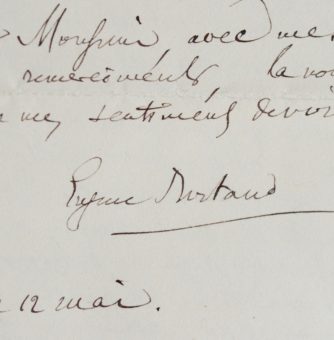 Monsieur avec me
remerciments, la
me, sentiments
Eugène Bertaud
12 mai.